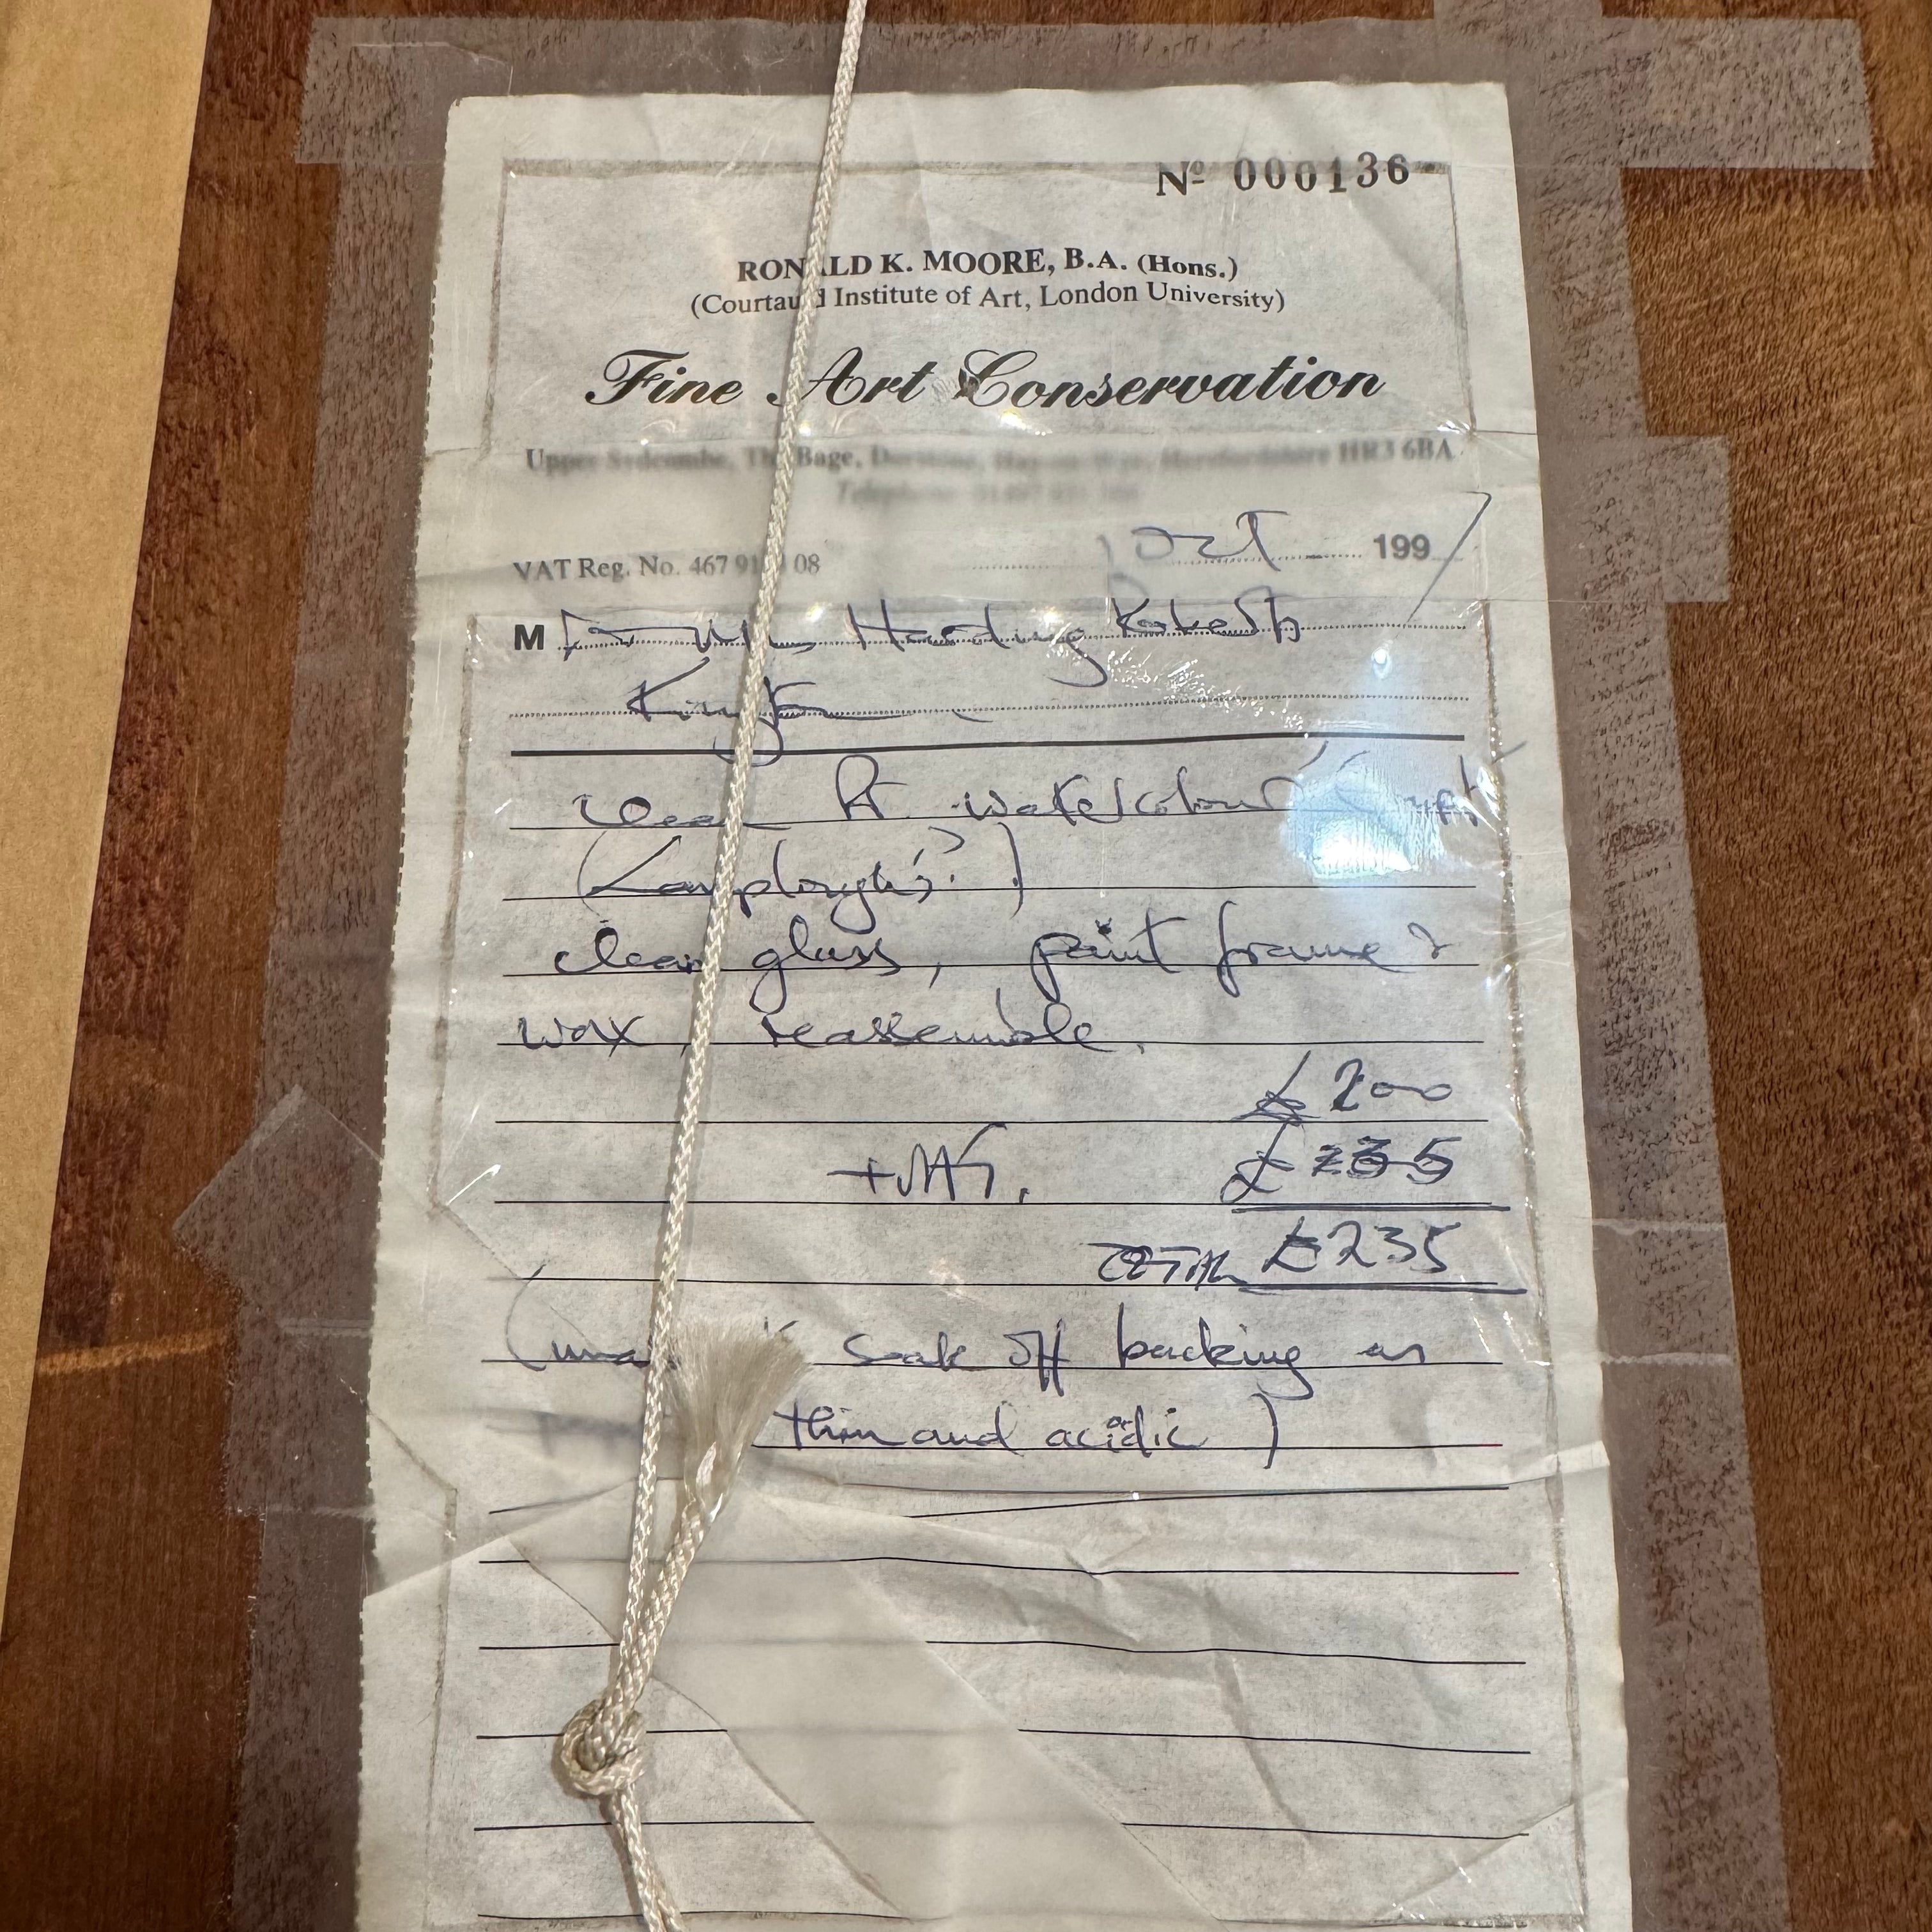 Nº 000136
RONALD K. MOORE, B.A. (Hons.)
(Courtauld Institute of Art, London University)
Fine Art Conservation
Upper The Bage, Herefordshire HR3 6BA
Telephone
VAT Reg. No. 467 91 08
1 Oct 1997
M Harding Roberts
Kington
Clean watercolour
clean glass, paint frame &
wax, reassemble.
£200
+ VAT. £35
TOTAL £235
soak off backing as
thin and acidic )